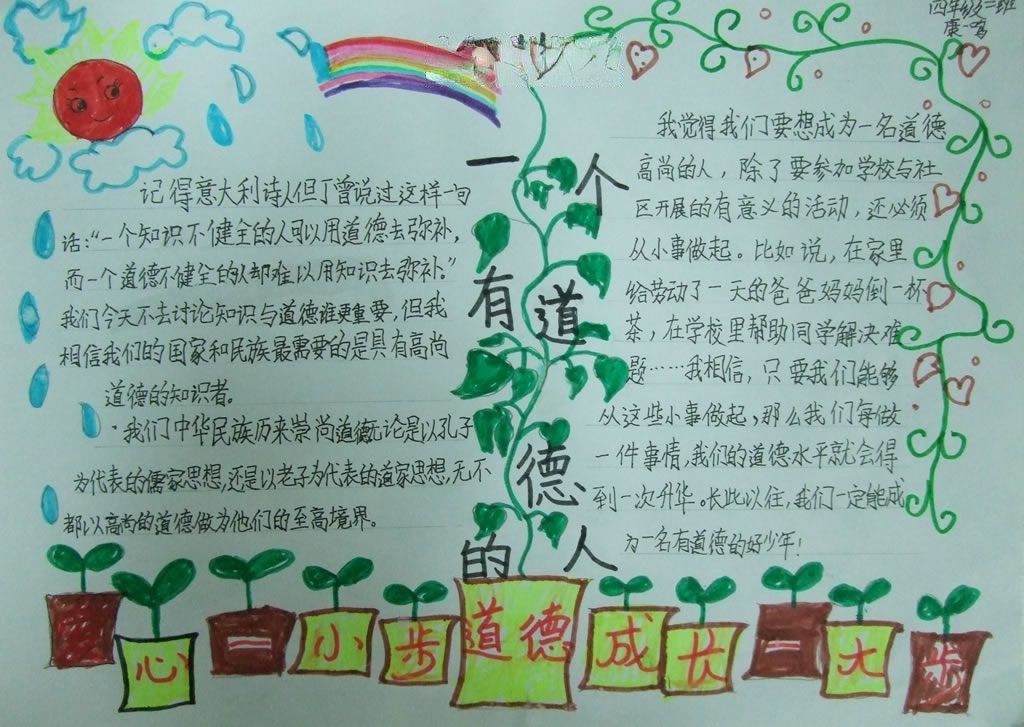 四年级二班
康一鸣
做一个有道德的人
记得意大利诗人但丁曾说过这样一句
话：“一个知识不健全的人可以用道德去弥补，
而一个道德不健全的人却难以用知识去弥补。”
我们今天不去讨论知识与道德谁更重要，但我
相信我们的国家和民族最需要的是具有高尚
道德的知识者。
我们中华民族历来崇尚道德无论是以孔子
为代表的儒家思想，还是以老子为代表的道家思想，无不
都以高尚的道德做为他们的至高境界。
我觉得我们要想成为一名道德
高尚的人，除了要参加学校与社
区开展的有意义的活动，还必须
从小事做起。比如说，在家里
给劳动了一天的爸爸妈妈倒一杯
茶，在学校里帮助同学解决难
题……我相信，只要我们能够
从这些小事做起，那么我们每做
一件事情，我们的道德水平就会得
到一次升华。长此以往，我们一定能成
为一名有道德的好少年！
心一小步道德成长一大步